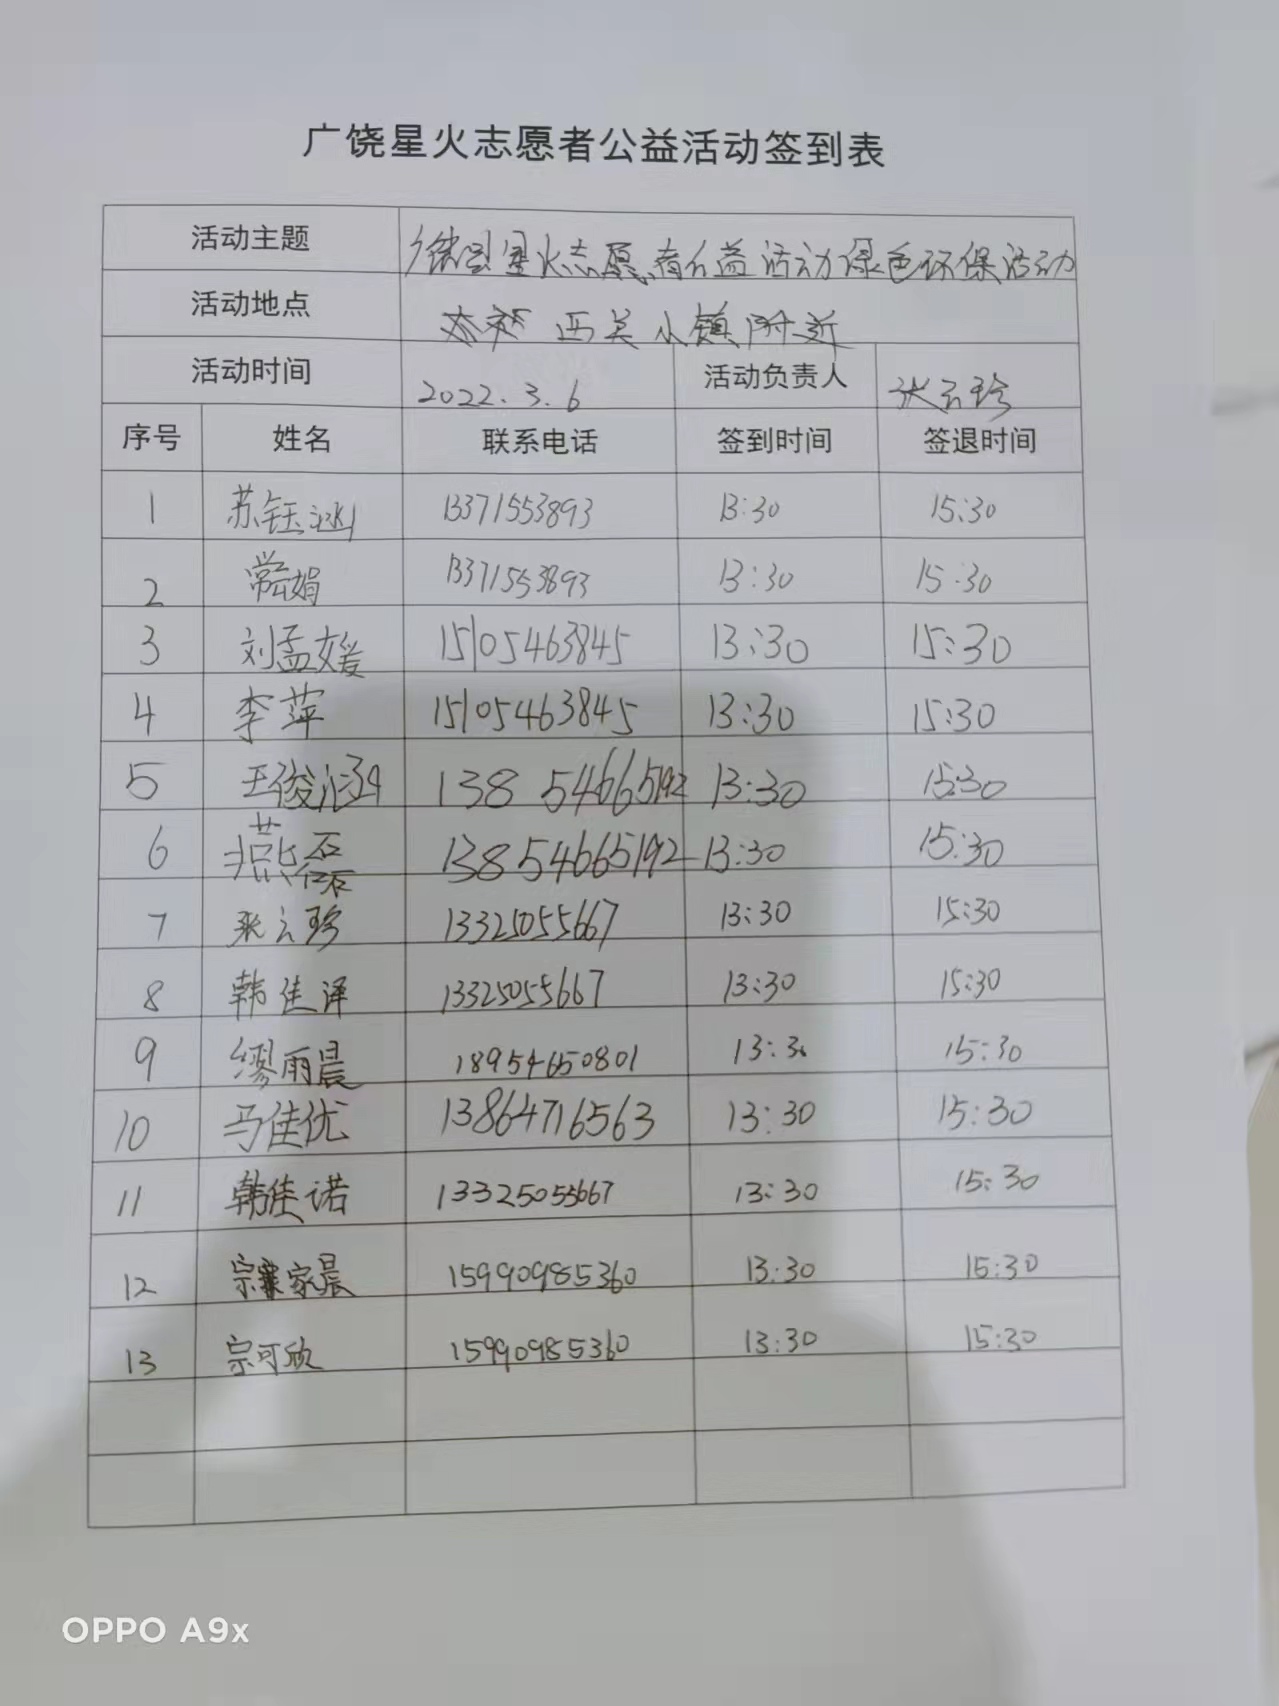 广饶星火志愿者公益活动签到表
活动主题 星火志愿者公益活动绿色环保活动
活动地点 西关小镇附近
活动时间 2022.3.6 活动负责人 张云珍
序号 姓名 联系电话 签到时间 签退时间
1 苏钰涵 13371553893 13:30 15:30
2 常云娟 13371553893 13:30 15:30
3 刘孟媛 15105463845 13:30 15:30
4 李萍 15105463845 13:30 15:30
5 王俊涵 13854665192 13:30 15:30
6 燕磊 13854665192 13:30 15:30
7 张云珍 13325055667 13:30 15:30
8 韩佳泽 13325055667 13:30 15:30
9 缪雨晨 18954650801 13:30 15:30
10 马佳优 13864716563 13:30 15:30
11 韩佳诺 13325055667 13:30 15:30
12 宗家晨 15990985360 13:30 15:30
13 宗可欣 15990985360 13:30 15:30
OPPO A9x